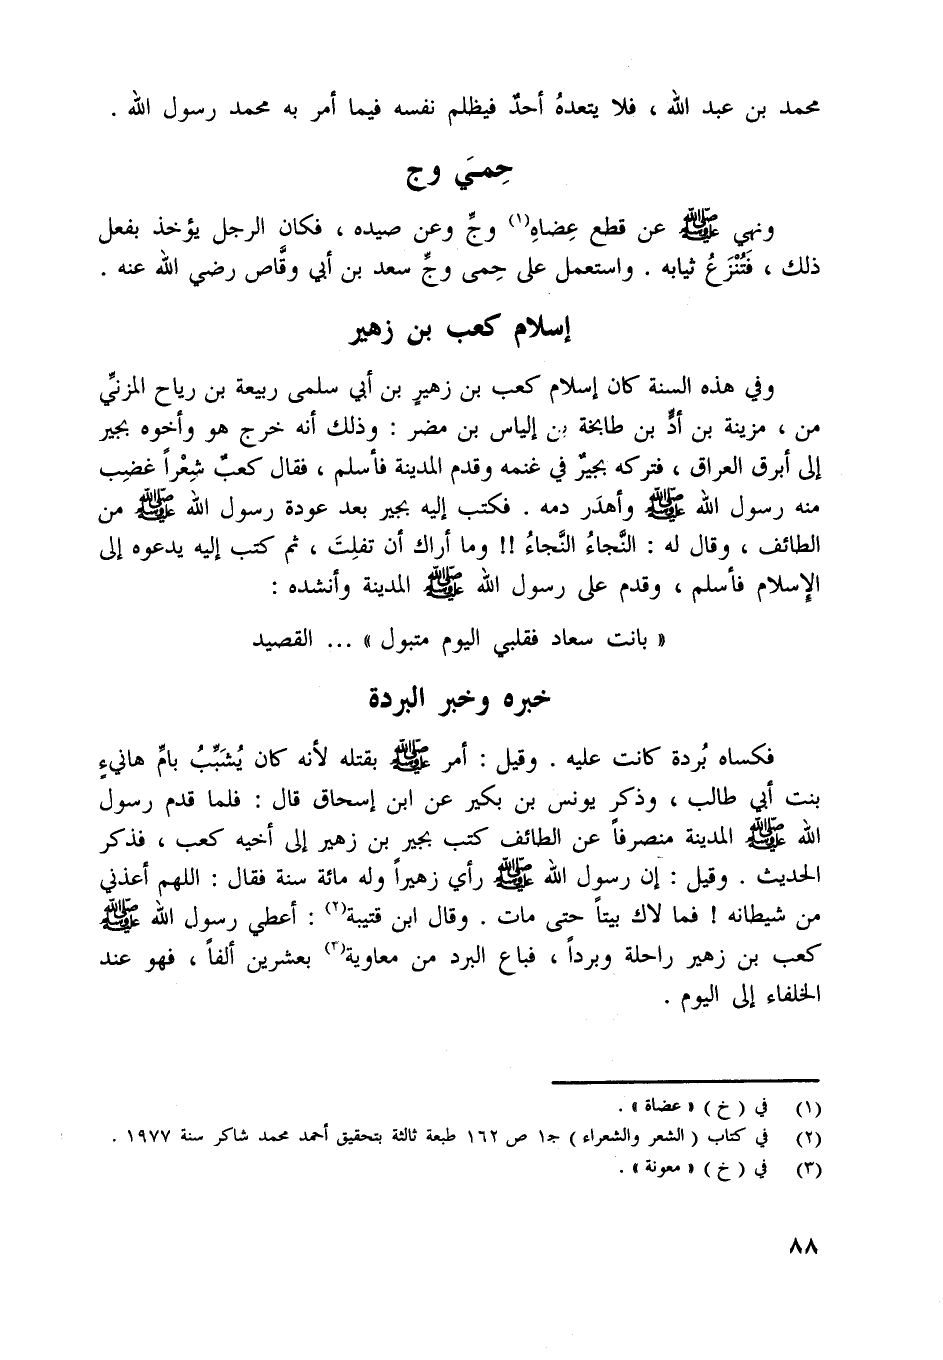 محمد بن عبد الله ، فلا يتعدهُ أحدٌ فيظلم نفسه فيما أمر به محمد رسول الله .
حِمىَ وج
ونهي ﷺ عن قطع عِضاهِ(١) وجٍّ وعن صيده ، فكان الرجل يؤخذ بفعل
ذلك ، فَتُنْزَعُ ثيابه . واستعمل على حِمى وجٍّ سعد بن أبي وقَّاص رضي الله عنه .
إسلام كعب بن زهير
وفي هذه السنة كان إسلام كعب بن زهيرٍ بن أبي سلمى ربيعة بن رياح المزنيِّ
من ، مزينة بن أدٍّ بن طابخة بن إلياس بن مضر : وذلك أنه خرج هو وأخوه بجير
إلى أبرق العراق ، فتركه بجيرٌ في غنمه وقدم المدينة فأسلم ، فقال كعبٌ شِعْراً غضِب
منه رسول الله ﷺ وأهدَر دمه . فكتب إليه بجير بعد عودة رسول الله ﷺ من
الطائف ، وقال له : النَّجاءُ النَّجاءُ !! وما أراك أن تفلِتَ ، ثم كتب إليه يدعوه إلى
الإسلام فأسلم ، وقدم على رسول الله ﷺ المدينة وأنشده :
« بانت سعاد فقلبي اليوم متبول » ... القصيد
خبره وخبر البردة
فكساه بُردة كانت عليه . وقيل : أمر ﷺ بقتله لأنه كان يُشَبِّبُ بامِّ هانيءٍ
بنت أبي طالب ، وذكر يونس بن بكير عن ابن إسحاق قال : فلما قدم رسول
الله ﷺ المدينة منصرفاً عن الطائف كتب بجير بن زهير إلى أخيه كعب ، فذكر
الحديث . وقيل : إن رسول الله ﷺ رأي زهيراً وله مائة سنة فقال : اللهم أعذني
من شيطانه ! فما لاك بيتاً حتى مات . وقال ابن قتيبة(٢) : أعطي رسول الله ﷺ
كعب بن زهير راحلة وبرداً ، فباع البرد من معاوية(٣) بعشرين ألفاً ، فهو عند
الخلفاء إلى اليوم .
(١) في ( خ ) « عضاة » .
(٢) في كتاب ( الشعر والشعراء ) جـ١ ص ١٦٢ طبعة ثالثة بتحقيق أحمد محمد شاكر سنة ١٩٧٧ .
(٣) في ( خ ) « معونة » .
٨٨